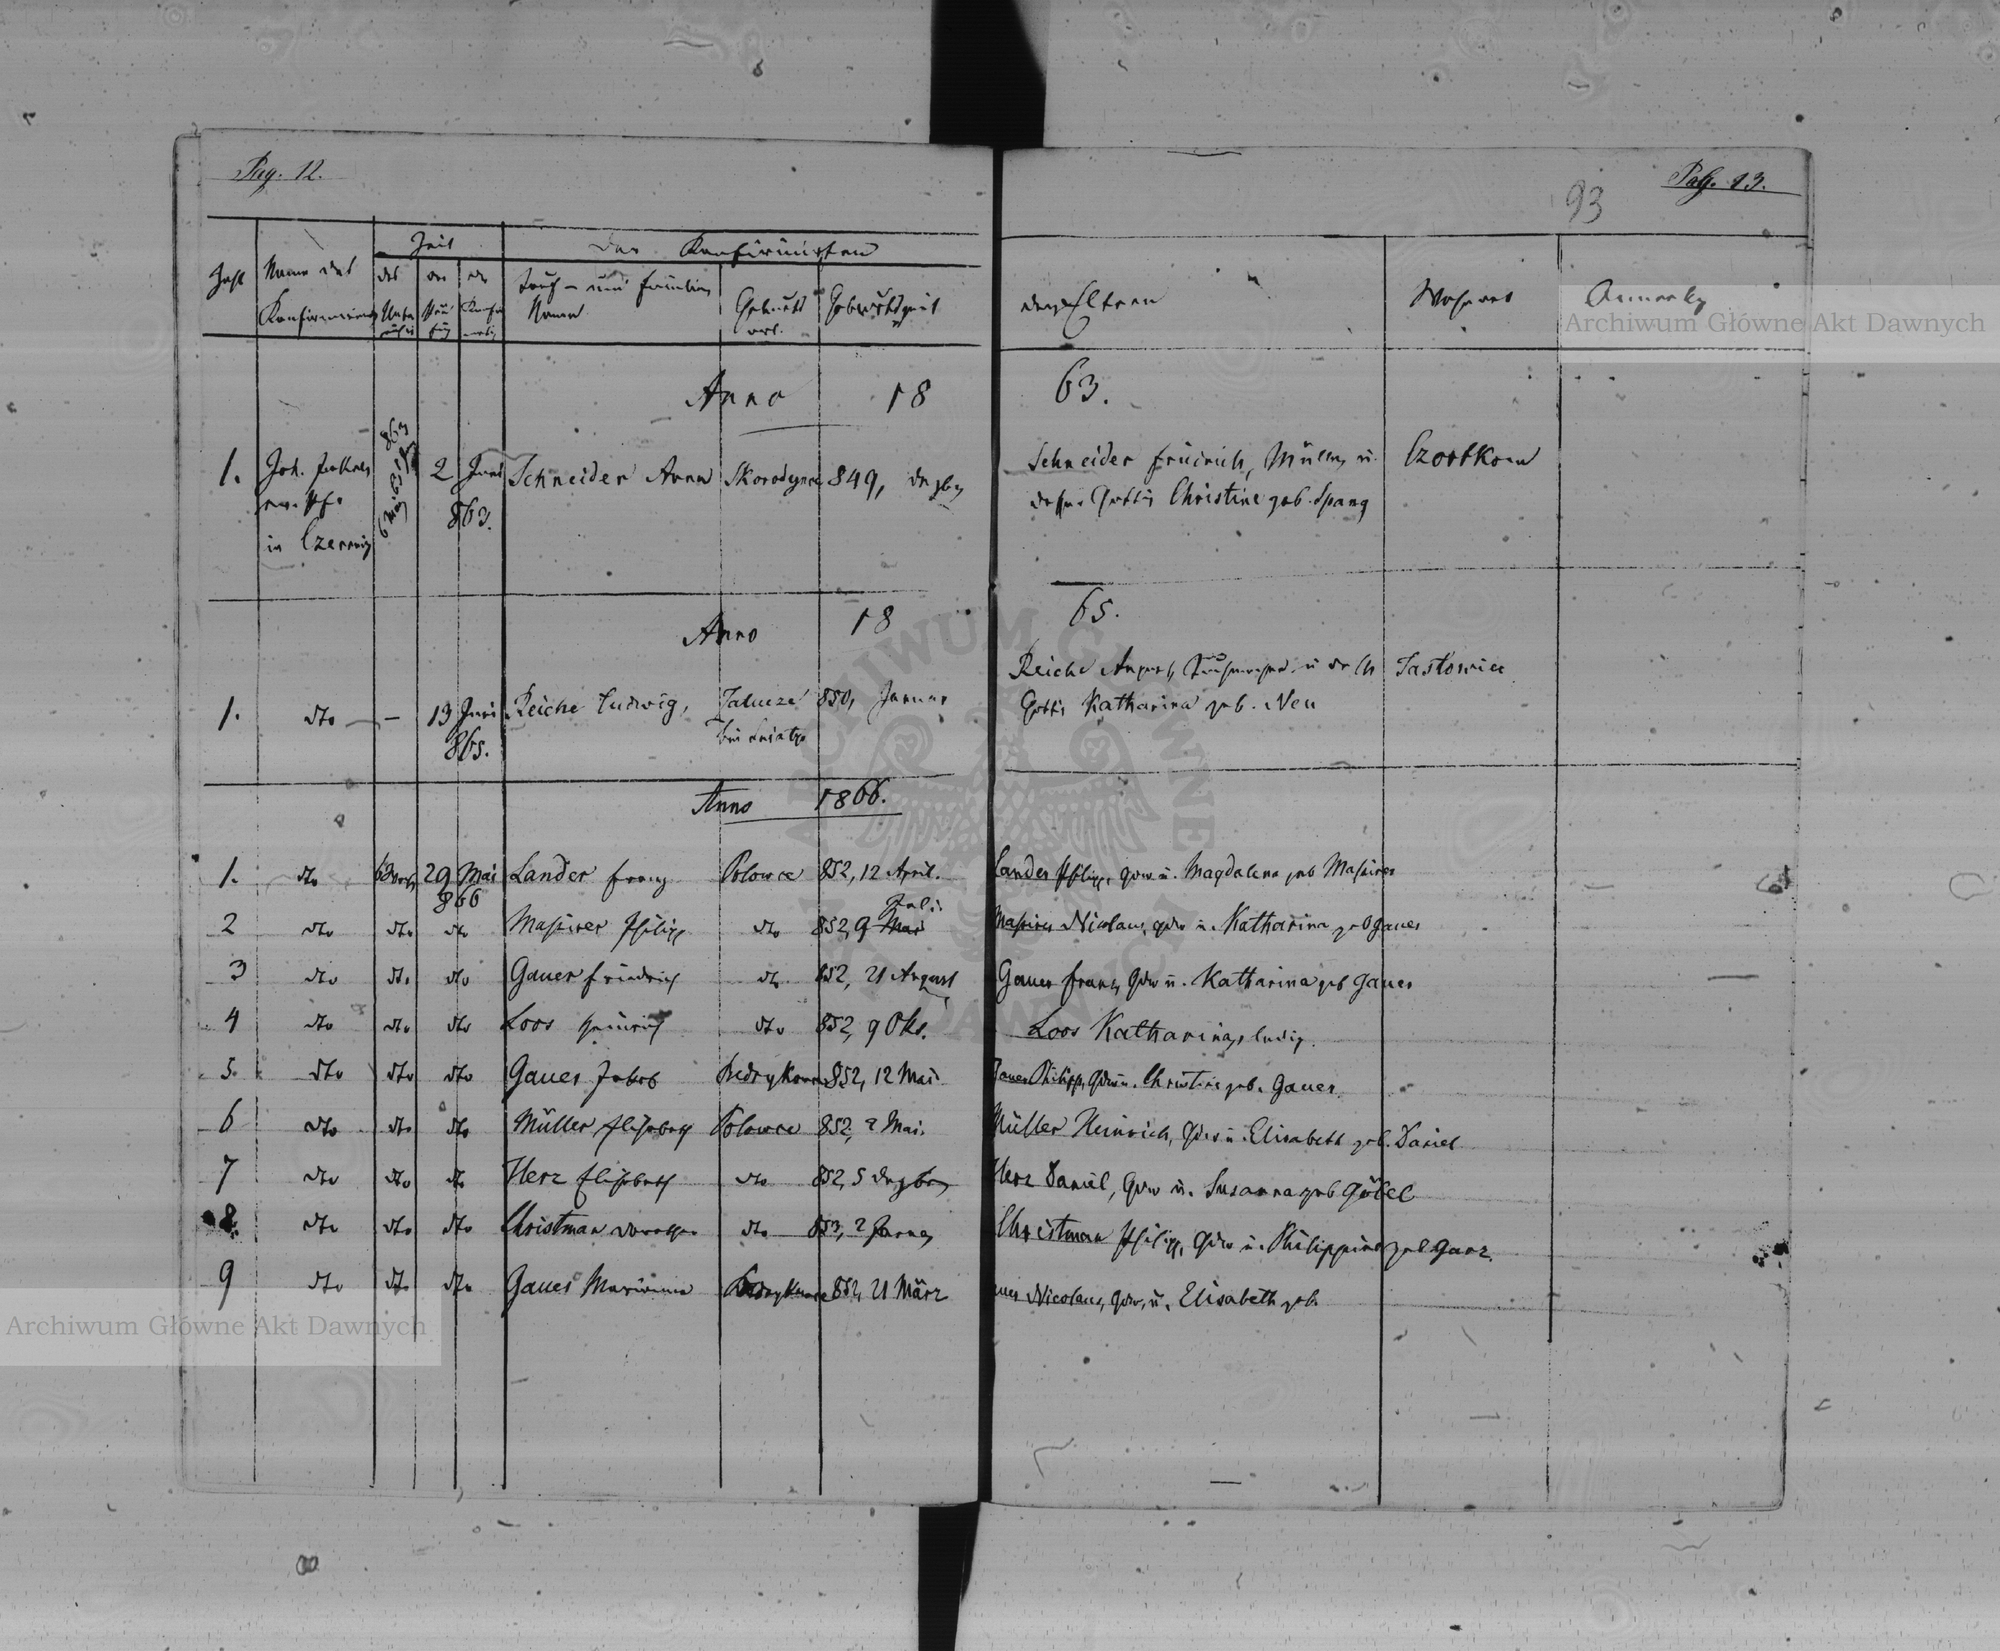 Pag. 12.
Pag. 13.
93
Zeit
Der Konfirmirten
Zahl
Name des
Konfirmirenden
des
der
der
Tauf- und Familien
Namen
Geburts
ort.
Geburtszeit
der Eltern
Wohnort
Anmerkg
Archiwum Główne Akt Dawnych
Anno 18
63.
1. Joh. 2 Juni Schneider Anna Skorodynce 849, Dezbr
863.
in
Schneider Friedrich, Müller, u. Czortkow
dessen Gattin Christine geb. Spang
Anno 18
65.
1. dto — 13 Juni Reiche Ludwig, 850, Januar
865.
Reiche August, u
Gattin Katharina geb. Neu
Anno 1866.
1. dto 29 Mai Lander Franz Polowce 852, 12 April.
866
Lander Philipp, u. Magdalena geb
Juli
2 dto dto dto Philipp dto 852, 9 Mai
Nicolaus, u. Katharina geb Gauer
3 dto dto dto Gauer Friedrich dto 852, 21 August
Gauer Franz, u. Katharina geb Gauer
4 dto dto dto Loos Heinrich dto 852, 9 Okt.
Loos Katharina, ledig.
5. dto dto dto Gauer Jakob 852, 12 Mai
Gauer Philipp, u. Christine geb. Gauer
6 dto dto dto Müller Elisabeth Polowce 852, 2 Mai.
Müller Heinrich, u. Elisabeth geb. Daniel
7 dto dto dto Herz Elisabeth dto 852, 5 Dezbr
Herz Daniel, u. Susanna geb Göbel
8. dto dto dto Christman Dorothea dto 853, 2
Christman Philipp, u. Philippine geb Ganz
9 dto dto dto Gauer 852, 21 März
Nicolaus, u. Elisabeth geb.
Archiwum Główne Akt Dawnych